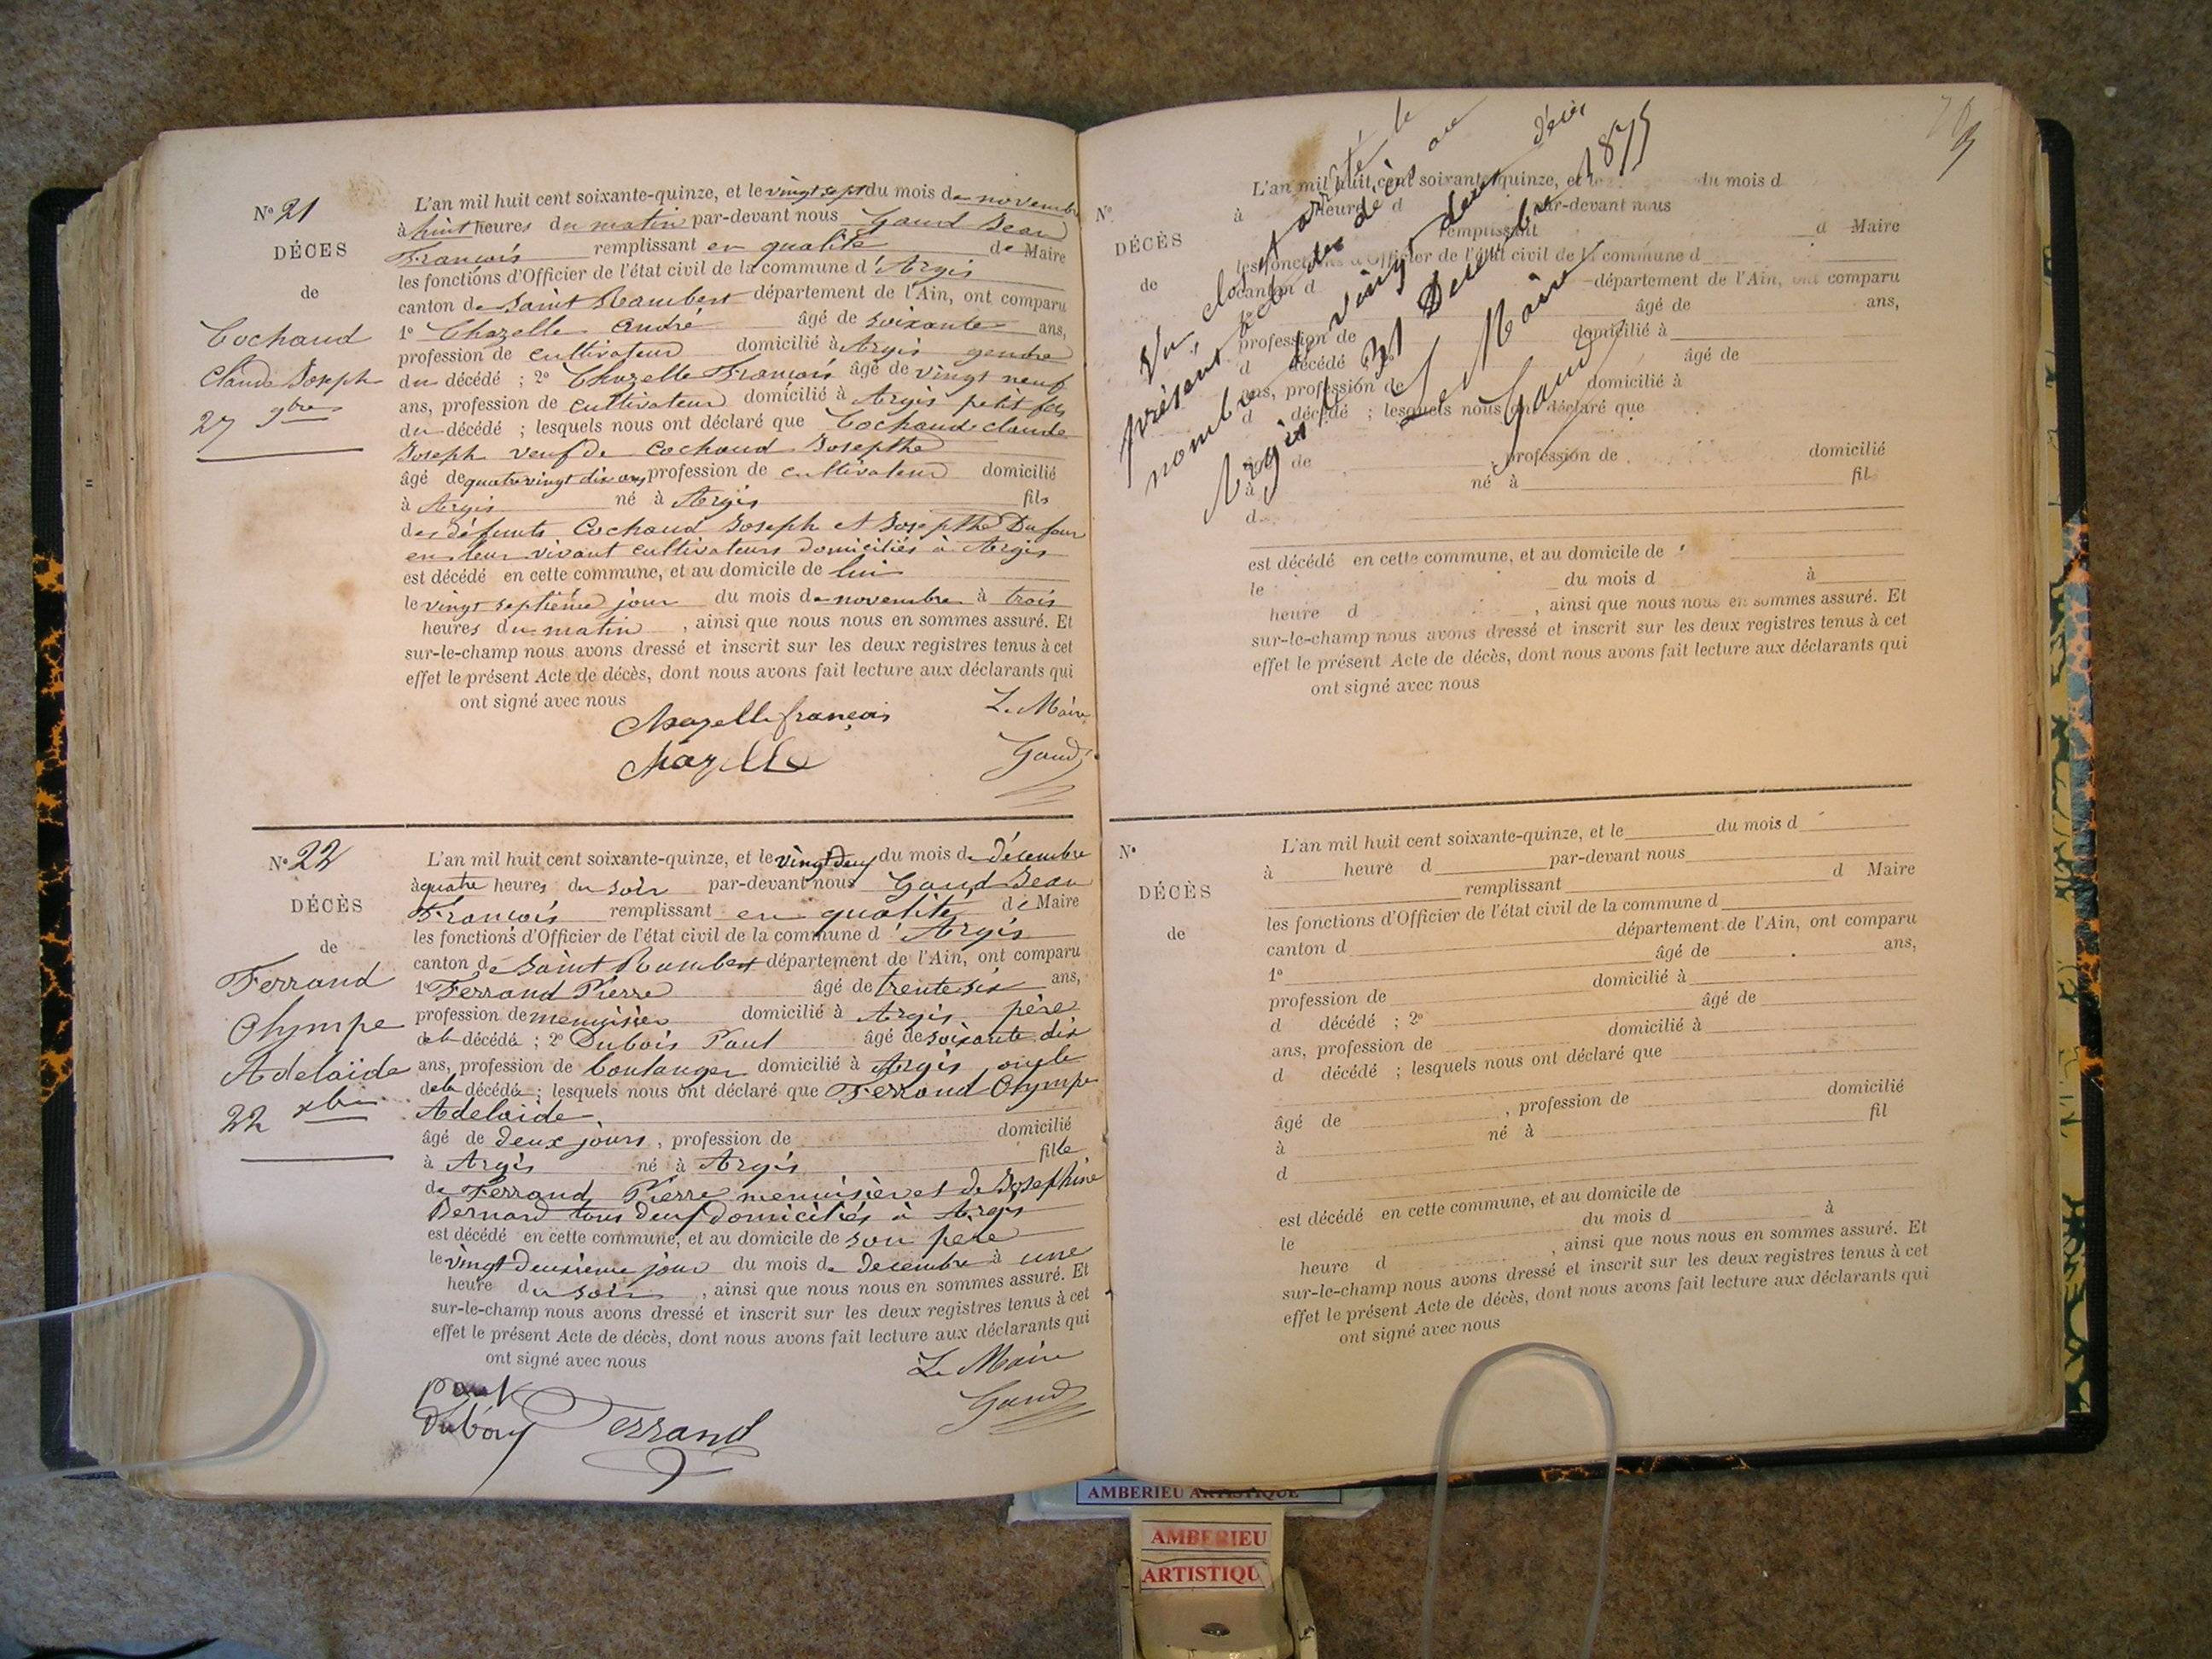 N° 21
DÉCES
de
Cochand
Claude Joseph
27 9bre
L'an mil huit cent soixante-quinze, et le vingt sept du mois de novembre
à huit heures du matin par-devant nous Gaud Jean
François remplissant en qualité de Maire
les fonctions d'Officier de l'état civil de la commune d'Argis
canton de Saint Rambert département de l'Ain, ont comparu
1° Chazelle André âgé de soixante ans,
profession de cultivateur domicilié à Argis gendre
du décédé ; 2° Chazelle François âgé de vingt neuf
ans, profession de cultivateur domicilié à Argis petit fils
du décédé ; lesquels nous ont déclaré que Cochand claude
Joseph veuf de Cochaud Josephte
âgé de quatre vingt dix ans profession de cultivateur domicilié
à Argis né à Argis fils
des défunts Cochaud Joseph et Josephte Dufour
en leur vivant cultivateurs domiciliés à Argis
est décédé en cette commune, et au domicile de lui
le vingt septième jour du mois de novembre à trois
heures du matin , ainsi que nous nous en sommes assuré. Et
sur-le-champ nous avons dressé et inscrit sur les deux registres tenus à cet
effet le présent Acte de décès, dont nous avons fait lecture aux déclarants qui
ont signé avec nous
Chazelle françois
Le Maire
Chazelle
Gaud
N° 22
DÉCÈS
de
Ferrand
Olympe
Adelaïde
22 xbre
L'an mil huit cent soixante-quinze, et le vingt deux du mois de décembre
à quatre heures du soir par-devant nous Gaud Jean
François remplissant en qualité de Maire
les fonctions d'Officier de l'état civil de la commune d'Argis
canton de Saint Rambert département de l'Ain, ont comparu
1° Ferrand Pierre âgé de trente six ans,
profession de menuisier domicilié à Argis père
de la décédé ; 2° Dubois Paul âgé de soixante dix
ans, profession de boulanger domicilié à Argis oncle
de la décédé ; lesquels nous ont déclaré que Ferrand Olympe
Adelaide
âgé de deux jours , profession de domicilié
à Argis né à Argis fille
de Ferrand Pierre menuisier et de Josephine
Bernard tous deux domiciliés à Argis
est décédé en cette commune, et au domicile de son père
le vingt deuxième jour du mois de decembre à une
heure du soir , ainsi que nous nous en sommes assuré. Et
sur-le-champ nous avons dressé et inscrit sur les deux registres tenus à cet
effet le présent Acte de décès, dont nous avons fait lecture aux déclarants qui
ont signé avec nous
Le Maire
Gaud
Paul
Dubois Ferrand
Vu, clos et arrêté le
présent des décès au
nombre vingt deux décès
Argis le 31 Decembre 1875
Le Maire
Gaud
N°
DÉCÈS
de
L'an mil huit cent soixante-quinze, et le du mois d
à heure d par-devant nous
remplissant d Maire
les fonctions d'Officier de l'état civil de la commune d
canton d département de l'Ain, ont comparu
âgé de ans,
profession de domicilié à
d décédé âgé de
ans, profession de domicilié à
d décédé ; lesquels nous ont déclaré que
âgé de profession de domicilié
à né à fil
d
est décédé en cette commune, et au domicile de
le du mois d à
heure d , ainsi que nous nous en sommes assuré. Et
sur-le-champ nous avons dressé et inscrit sur les deux registres tenus à cet
effet le présent Acte de décès, dont nous avons fait lecture aux déclarants qui
ont signé avec nous
N°
DÉCÈS
de
L'an mil huit cent soixante-quinze, et le du mois d
à heure d par-devant nous
remplissant d Maire
les fonctions d'Officier de l'état civil de la commune d
canton d département de l'Ain, ont comparu
1° âgé de ans,
profession de domicilié à
d décédé ; 2° âgé de
ans, profession de domicilié à
d décédé ; lesquels nous ont déclaré que
âgé de , profession de domicilié
à né à fil
d
est décédé en cette commune, et au domicile de
le du mois d à
heure d , ainsi que nous nous en sommes assuré. Et
sur-le-champ nous avons dressé et inscrit sur les deux registres tenus à cet
effet le présent Acte de décès, dont nous avons fait lecture aux déclarants qui
ont signé avec nous
AMBERIEU ARTISTIQUE
AMBERIEU
ARTISTIQU